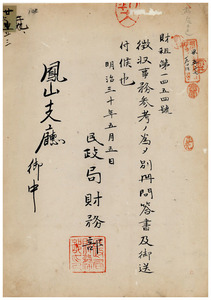 財租第一四五四號
徴収事務参考ノ為メ別冊問答書及御送
付候也
明治三十年五月五日
民政局財務部
鳳山支廳御中